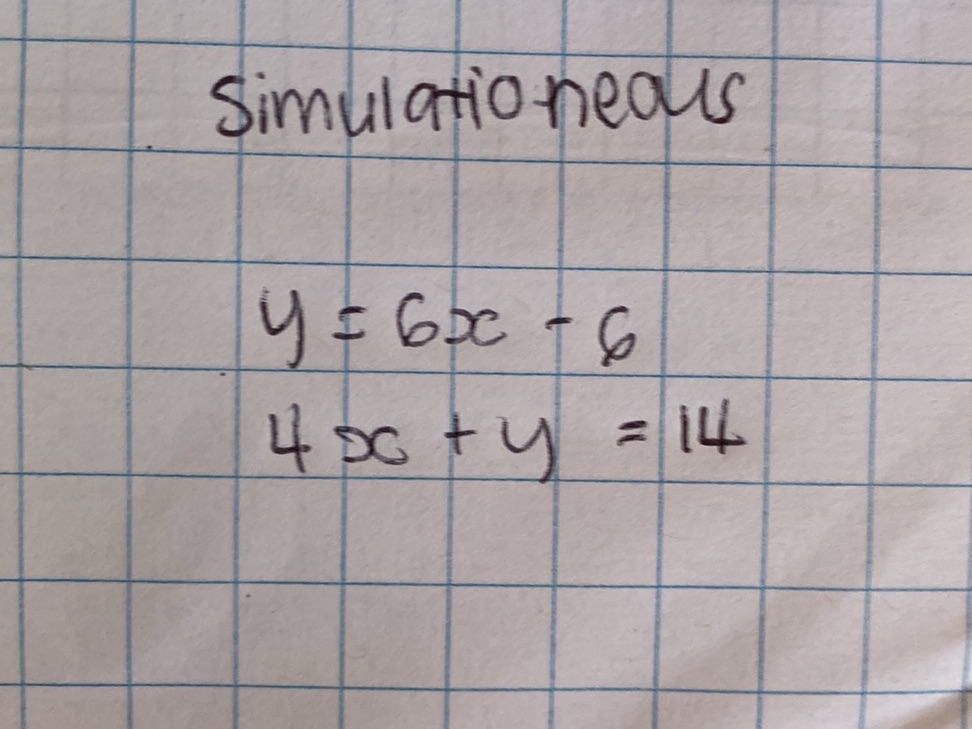 Simulationeous
y = 6x - 6
4x + y = 14